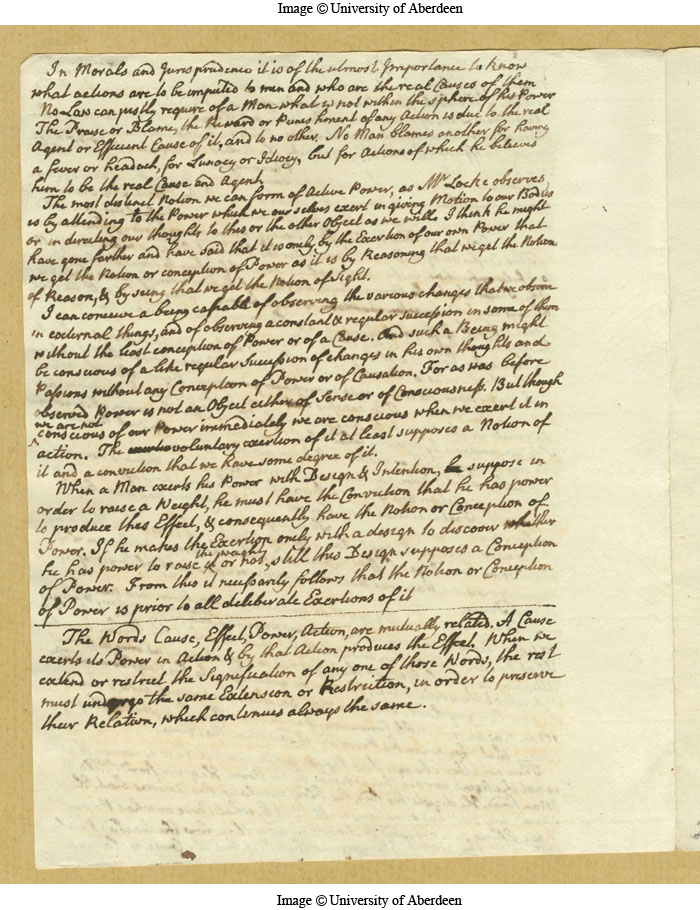 Image © University of Aberdeen
In Morals and Jurisprudence it is of the utmost Importance to know
what actions are to be imputed to men and who are the real Causes of them
No Law can justly require of a Man what is not within the sphere of his Power
The Praise or Blame, the Reward or Punishment of any Action is due to the real
Agent or Efficient Cause of it, and to no other. No Man blames another for having
a fever or headach, for Lunacy or Idiocy, but for Actions of which he believes
him to be the real Cause and Agent
The most distinct Notion we can form of Active Power, as Mr Locke observes,
is by attending to the Power which we our selves exert in giving Motion to our Bodies
or in directing our thoughts to this or the other Object as we will. I think he might
have gone farther and have said that it is onely by the Exertion of our own Power that
we get the Notion or conception of Power as it is by Reasoning that we get the Notion
of Reason, & by seing that we get the Notion of Sight.
I can conceive a being capable of observing the various changes that we observe
in external things, and of observing a constant & regular succession in some of them
without the least conception of Power or of a Cause. And such a Being might
be conscious of a like regular Succession of changes in his own thoughts and
Passions without any Conception of Power or of Causation. For as was before
observed Power is not an Object either of Sense or of Consciousness. But though
we are not
conscious of our Power immediately we are conscious when we exert it in
action. The voluntary exertion of it at least supposes a Notion of
it and a conviction that we have some degree of it.
When a Man exerts his Power with Design & Intention, suppose in
order to raise a Weight, he must have the Conviction that he has power
to produce this Effect, & consequently have the Notion or Conception of
Power. If he makes the Exertion onely with a design to discover whether
the weight
he has power to raise or not, still this Design supposes a Conception
of Power. From this it necessarily follows that the Notion or Conception
of Power is prior to all deliberate Exertions of it
The Words Cause, Effect, Power, Action, are mutually related. A Cause
exerts its Power in Action & by that Action produces the Effect. When we
extend or restrict the Signification of any one of those Words, the rest
must undergo the same Extension or Restriction, in order to preserve
their Relation, which continues always the same.
Image © University of Aberdeen